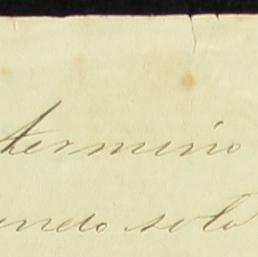 termino
endo solo